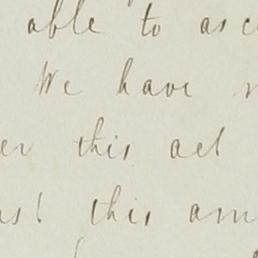 able to asc
We have n
er this act
us! this am